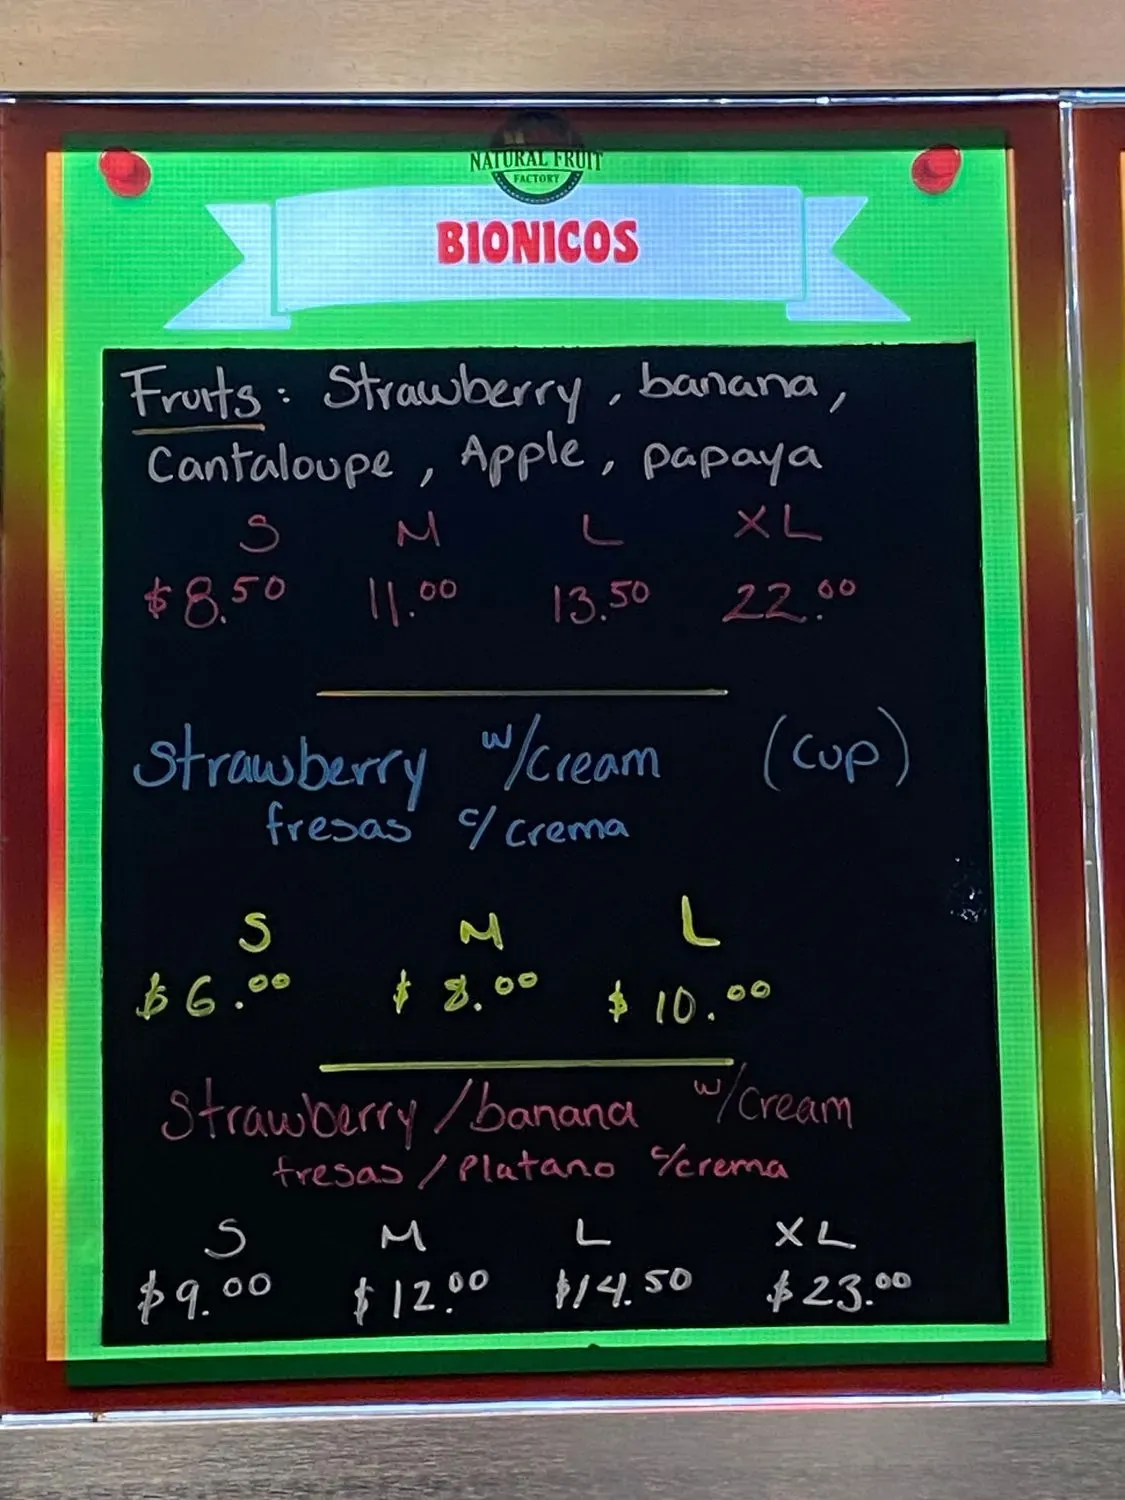 NATURAL FRUIT
FACTORY
BIONICOS
Fruits: Strawberry, banana,
Cantaloupe, Apple, papaya
S M L XL
$8.50 11.00 13.50 22.00
Strawberry w/cream (cup)
fresas c/crema
S M L
$6.00 $8.00 $10.00
Strawberry/banana w/cream
fresas/Platano c/crema
S M L XL
$9.00 $12.00 $14.50 $23.00